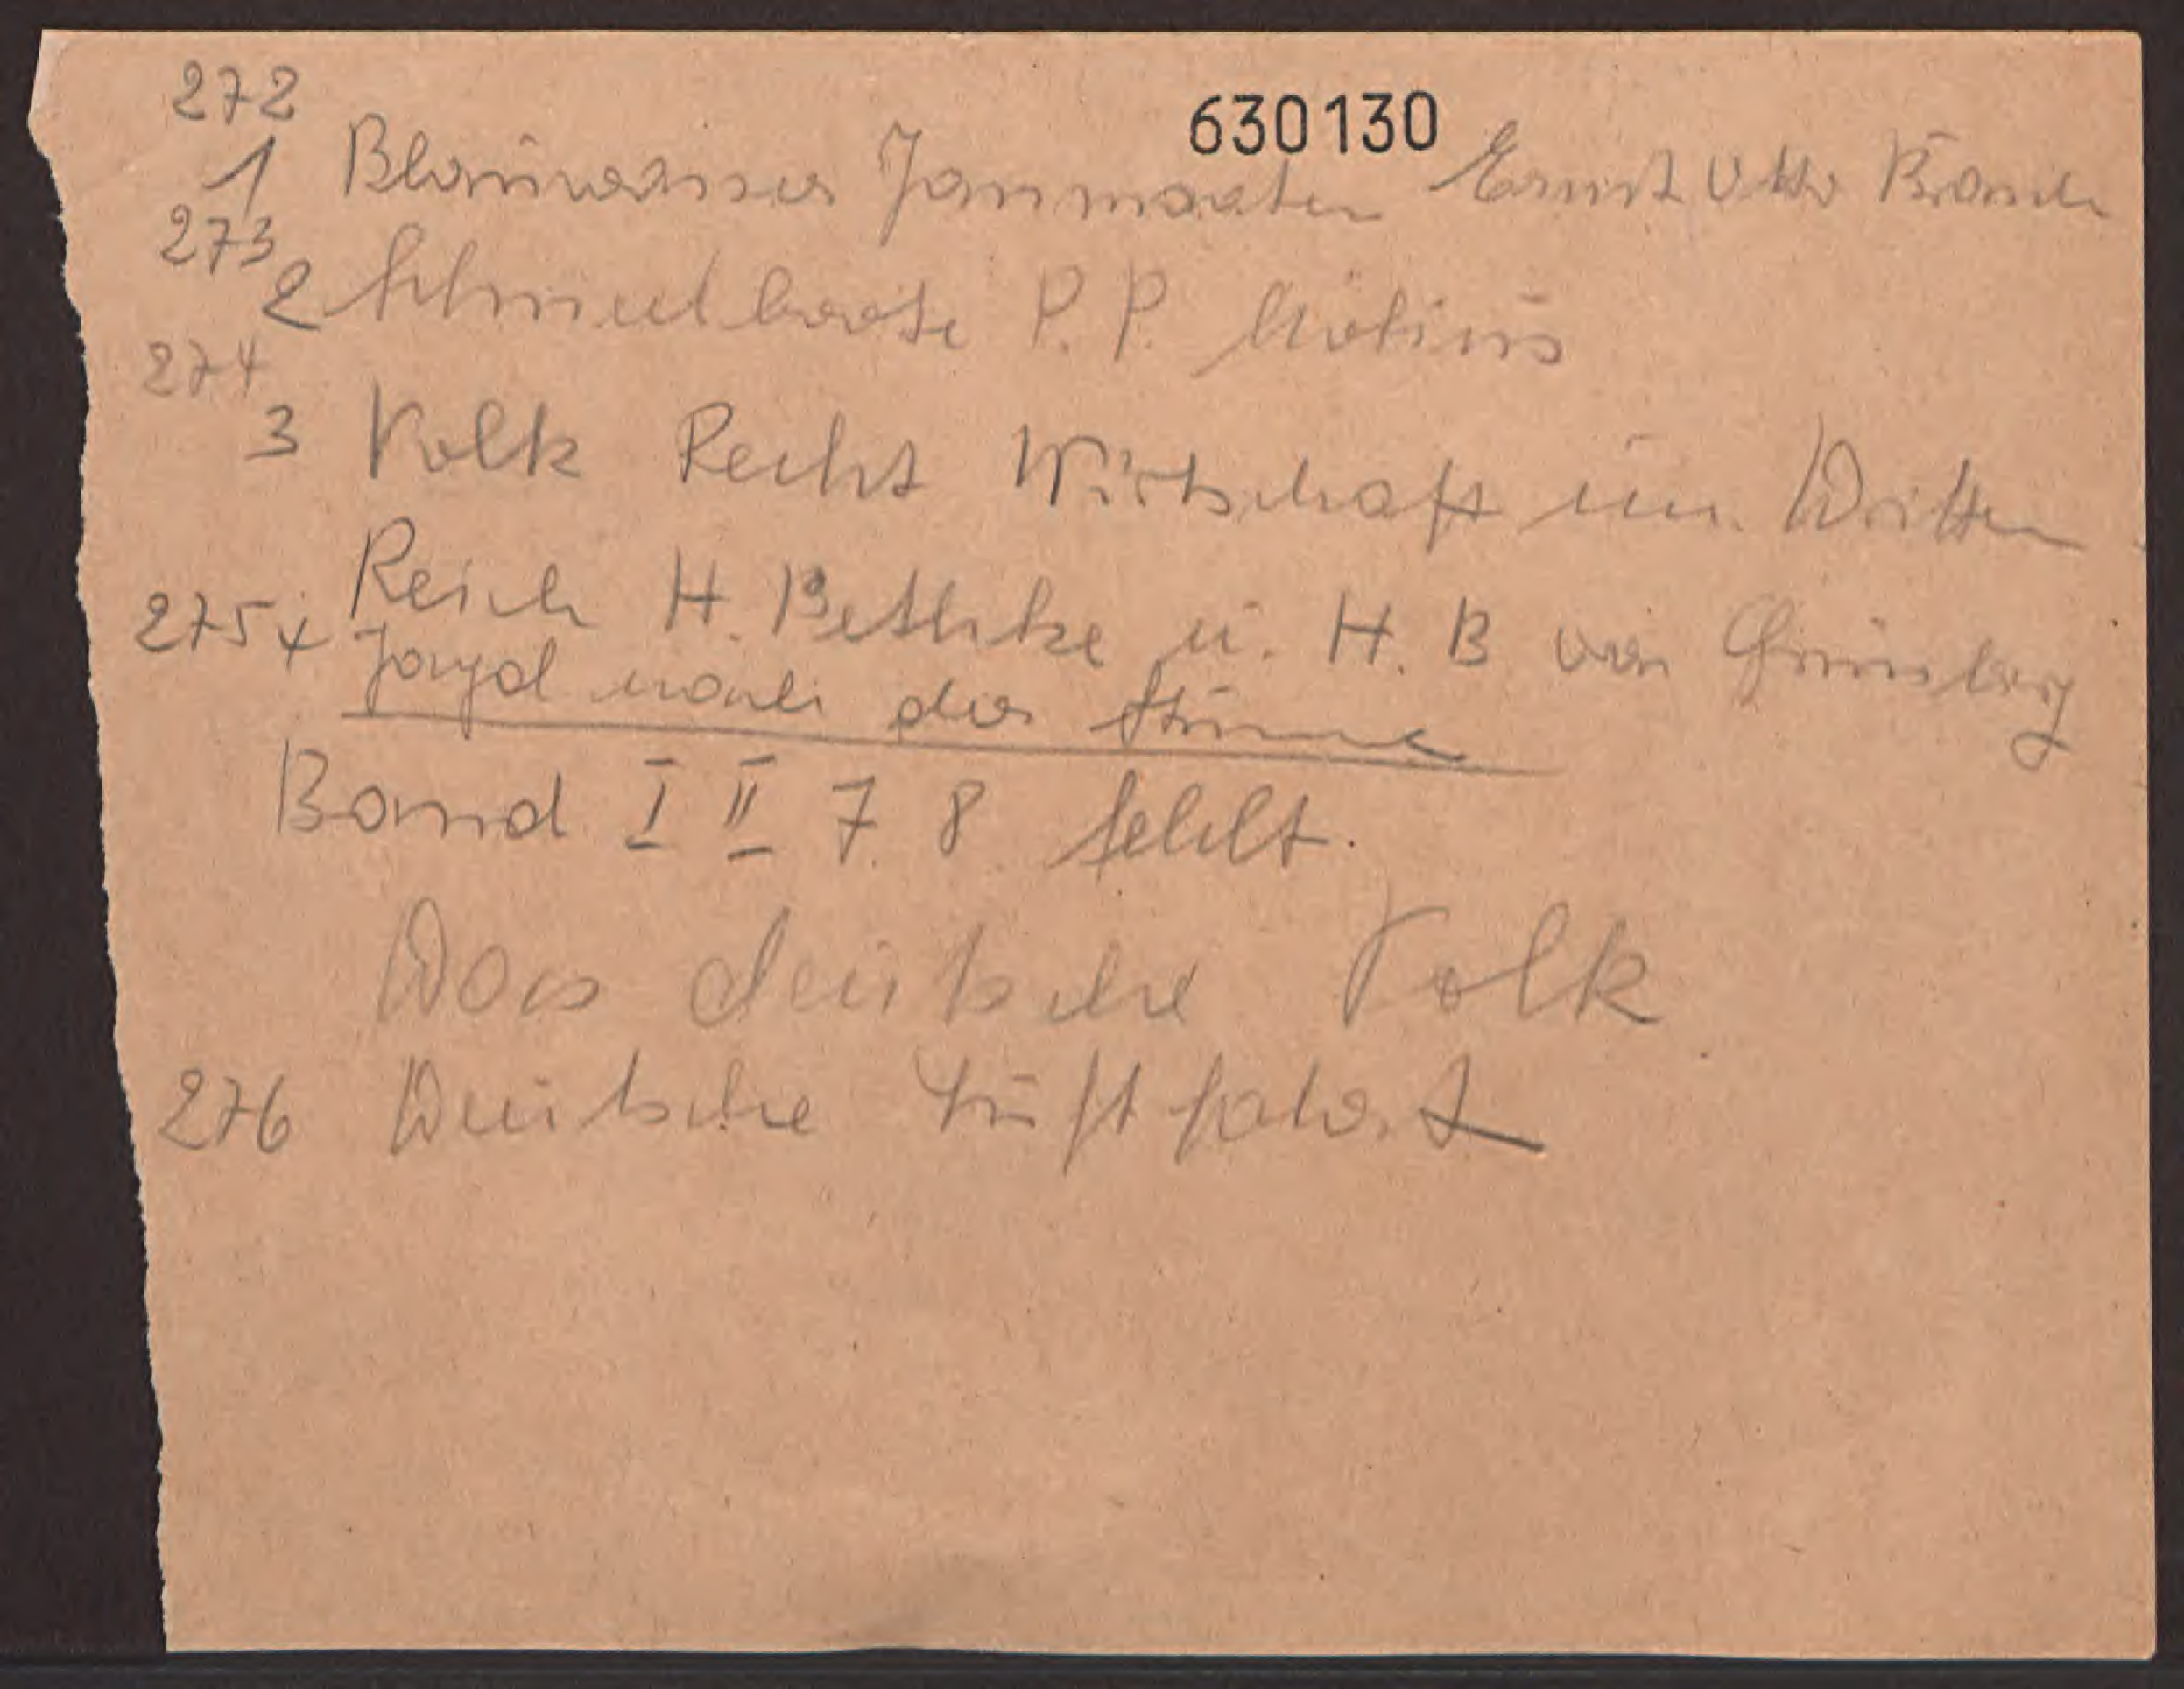 272
630130
1 Blauwasser Janmaaten Ernst Otto Brauch
273
2 Schnellboote P.P. Möbius
274
3 Volk Recht Wirtschaft im Dritten
Reich H. Bethke u. H. B von Grünberg
275 4 Jagd nach der Stimme
Band I II 7 8 fehlt.
Das deutsche Volk
276 Deutsche Luftfahrt